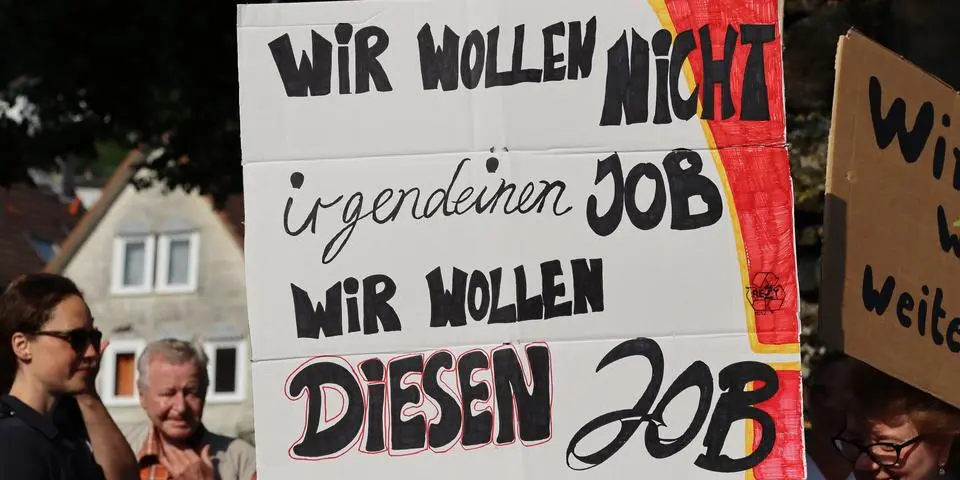 WiR WOLLEN NiCHT
irgendeinen JOB
WiR WOLLEN
DiESEN JOB
RESY
Wir
weite